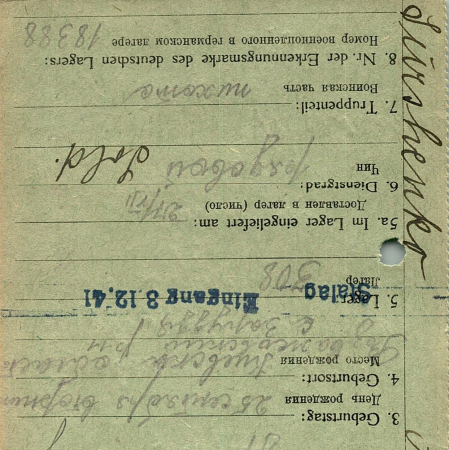 3. Geburtstag: 25 сентября
День рождения
4. Geburtsort: Киевск
Место рождения
с Заруддя
5. Lager
Stalag Eingang 3.12.41
Лагер 308
5a. Im Lager eingeliefert am:
Доставлен в лагер (число)
6. Dienstgrad: рядовой Sold.
Чин
7. Truppenteil: пихота
Воинская часть
8. Nr. der Erkennungsmarke des deutschen Lagers:
Номер военнопленного в германском лагере 18388
Surshenko